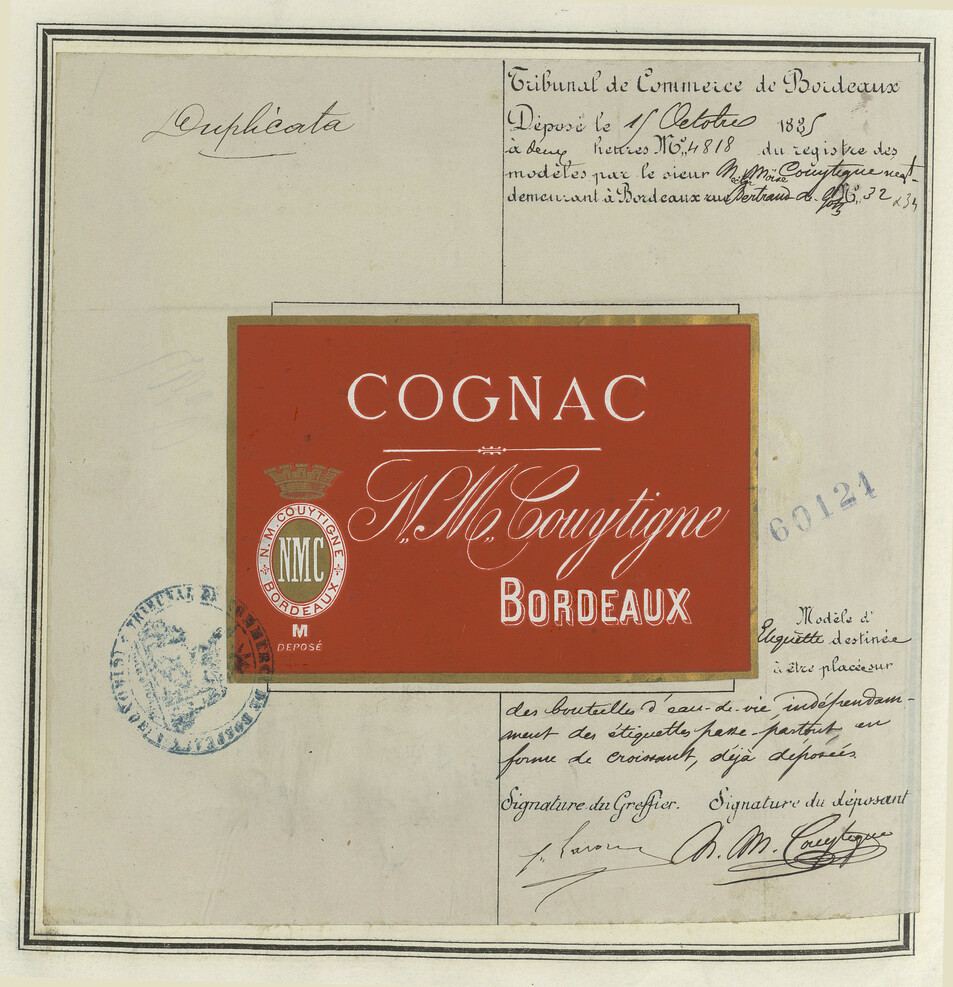 Duplicata
Tribunal de Commerce de Bordeaux
Déposé le 15 Octobre 1885
à deux heures No 4818 du registre des
modèles par le sieur Moïse Couytigne negt
demeurant à Bordeaux rue Bertrand de No 32 & 34
COGNAC
N. M. Couytigne
BORDEAUX
N.M. COUYTIGNE
NMC
BORDEAUX
M
DEPOSÉ
60121
TRIBUNAL DE COMMERCE DE BORDEAUX
Modèle d'
Etiquette destinée
à être placée sur
des bouteilles d'eau-de-vie indépendam-
ment des étiquettes passe-partout en
forme de croissant, déjà déposées.
Signature du Greffier. Signature du déposant
N. M. Couytigne